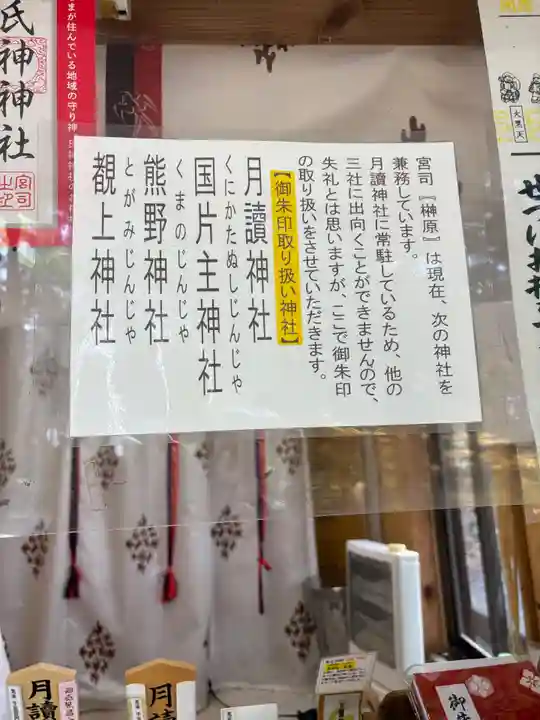 宮司『榊原』は現在、次の神社を
兼務しています。
月讀神社に常駐しているため、他の
三社に出向くことができませんので、
失礼とは思いますが、ここで御朱印
の取り扱いをさせていただきます。
【御朱印取り扱い神社】
月讀神社
くにかたぬしじんじゃ
国片主神社
くまのじんじゃ
熊野神社
とがみじんじゃ
覩上神社
大黒天
まが住んでいる地域の守り神
氏神神社
月讀
月讀
御